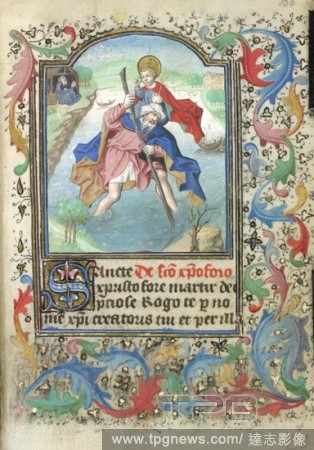 Sancte De sco xpoforo
xpristofore martir dei
preciose Rogo te p no
me xpi creatoris tui et per ill
TPG
www.tpgnews.com/ 達志影像